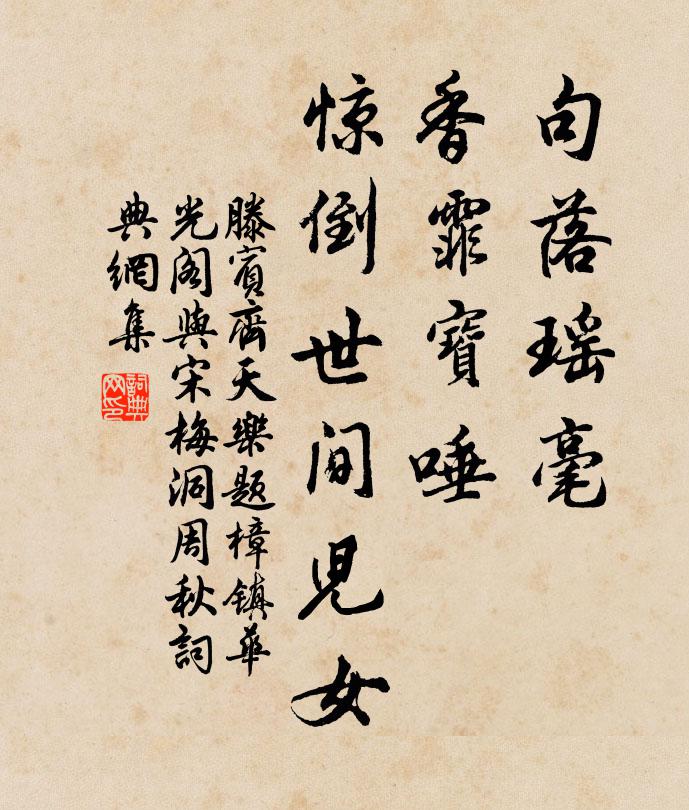 句落瑶毫
香霏寶唾
惊倒世间兒女
滕賓齊天樂題樟鎮華
光阁與宋梅洞周秋詞
典網集
詞典网印